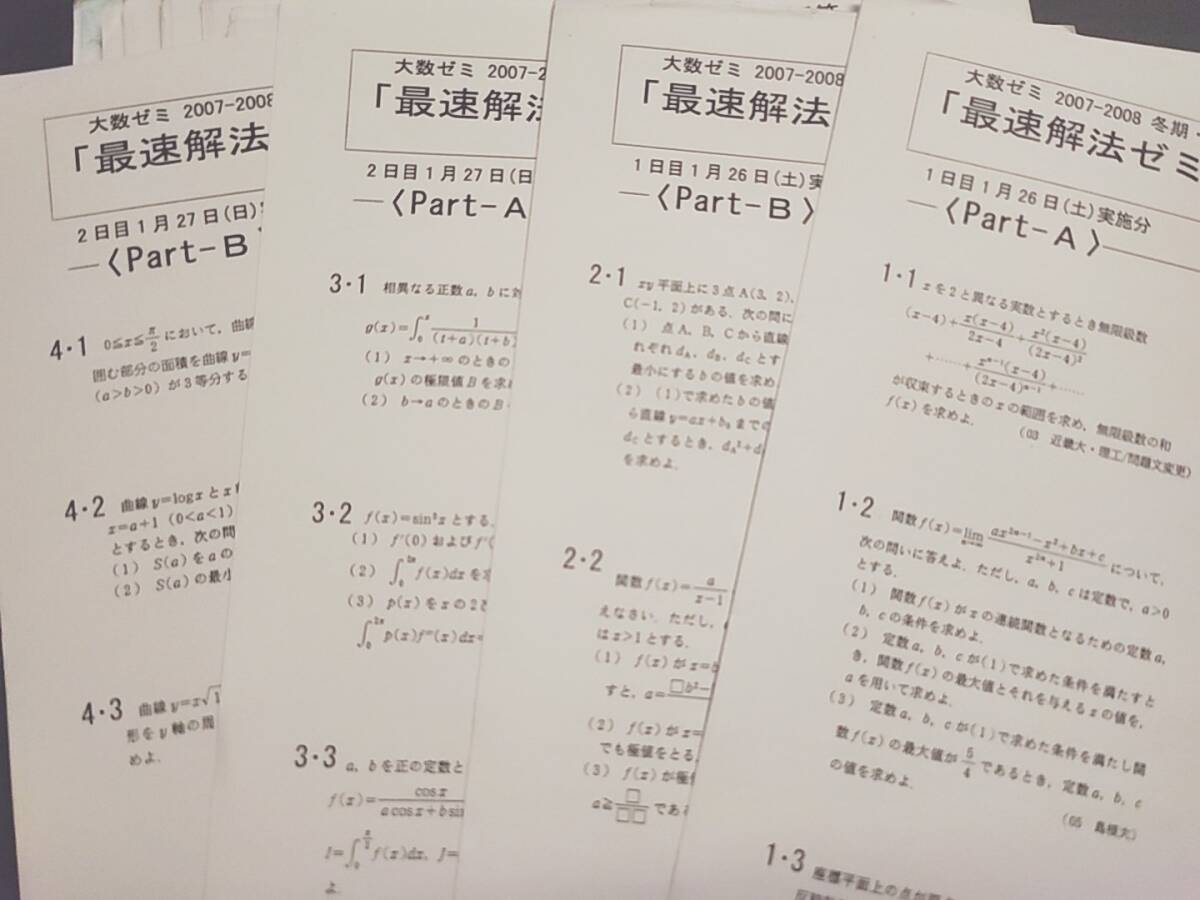 大数ゼミ 2007-2008
「最速解法
2日目1月27日(日)
〈Part-B
4・1 0≦x≦π/2において，曲線
囲む部分の面積を曲線y=
(a>b>0)が3等分する
4・2 曲線y=logxとx
x=a+1 (0<a<1)
とするとき，次の問
(1) S(a)をaの
(2) S(a)の最小
4・3 曲線y=x√1
形をy軸の周
めよ．
大数ゼミ 2007-2
「最速解法
2日目1月27日(日
〈Part-A
3・1 相異なる正数a，bに対
g(x)=∫₀ˣ 1/((t+a)(t+b)
(1) x→+∞のときの
g(x)の極限値Bを求め
(2) b→aのときのB
3・2 f(x)=sin³xとする．
(1) f′(0)およびf′(
(2) ∫₀^2π f(x)dxを求
(3) p(x)をxの2
∫₀^2π p(x)f″(x)dx=
3・3 a，bを正の定数と
f(x)=cosx/(acosx+bsin
I=∫₀^π/2 f(x)dx，J=
よ．
大数ゼミ 2007-2008
「最速解法
1日目1月26日(土)実
〈Part-B〉
2・1 xy平面上に3点A(3，2)，
C(-1，2)がある．次の問に
(1) 点A，B，Cから直線
れぞれd_A，d_B，d_Cとす
最小にするbの値を求め
(2) (1)で求めたbの値
ら直線y=ax+b₀までの
d_Cとするとき，d_A²+d
を求めよ．
2・2
関数f(x)=a/(x-1)
えなさい．ただし，
はx>1とする．
(1) f(x)がx=b
すと，a=□b²-
(2) f(x)がx=
でも極値をとる．
(3) f(x)が極値
a≧□/□□であ
大数ゼミ 2007-2008 冬期
「最速解法ゼミ
1日目1月26日(土)実施分
〈Part-A〉
1・1 xを2と異なる実数とするとき無限級数
(x-4)+x(x-4)/(2x-4)+x²(x-4)/(2x-4)²
+……+xⁿ⁻¹(x-4)/(2x-4)ⁿ⁻¹+……
が収束するときのxの範囲を求め，無限級数の和
f(x)を求めよ．
(03 近畿大・理工/問題文変更)
1・2 関数f(x)=lim n→∞ (ax²ⁿ⁻¹-x²+bx+c)/(x²ⁿ+1)について，
次の問いに答えよ．ただし，a，b，cは定数で，a>0
とする．
(1) 関数f(x)がxの連続関数となるための定数a，
b，cの条件を求めよ．
(2) 定数a，b，cが(1)で求めた条件を満たすと
き，関数f(x)の最大値とそれを与えるxの値を，
aを用いて求めよ．
(3) 定数a，b，cが(1)で求めた条件を満たし関
数f(x)の最大値が5/4であるとき，定数a，b，c
の値を求めよ．
(05 島根大)
1・3 座標平面上の点が原点